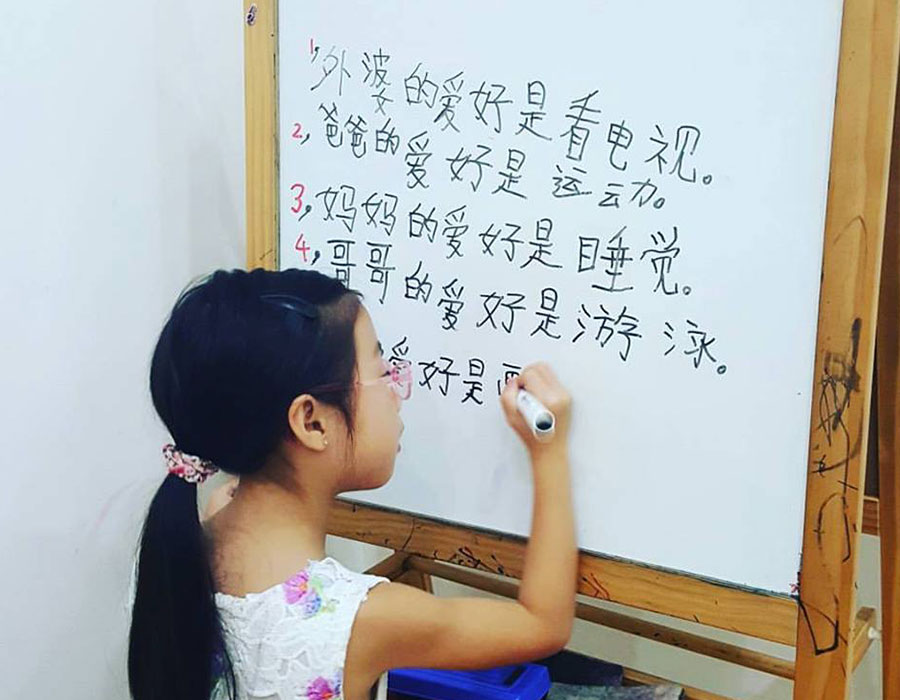 1,外婆的爱好是看电视。
2,爸爸的爱好是运动。
3,妈妈的爱好是睡觉。
4,哥哥的爱好是游泳。
爱好是